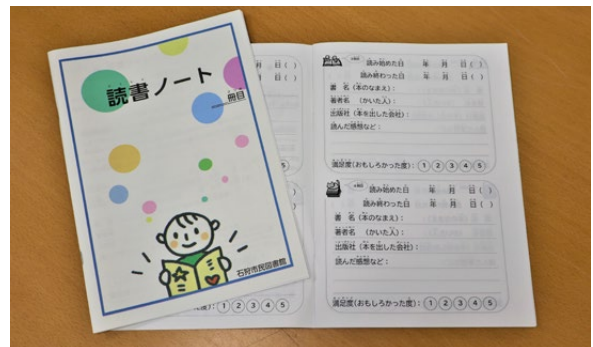 読書ノート
冊目
石狩市民図書館
日( )
日( )
5
度): 1 2 3 4 5
読み始めた日 年 月 日( )
読み終わった日 年 月 日( )
書 名(本のなまえ):
著者名 (かいた人):
出版社(本を出した会社):
読んだ感想など:
満足度(おもしろかった度): 1 2 3 4 5
読み始めた日 年 月 日( )
読み終わった日 年 月 日( )
書 名(本のなまえ):
著者名 (かいた人):
出版社(本を出した会社):
読んだ感想など:
満足度(おもしろかった度): 1 2 3 4 5